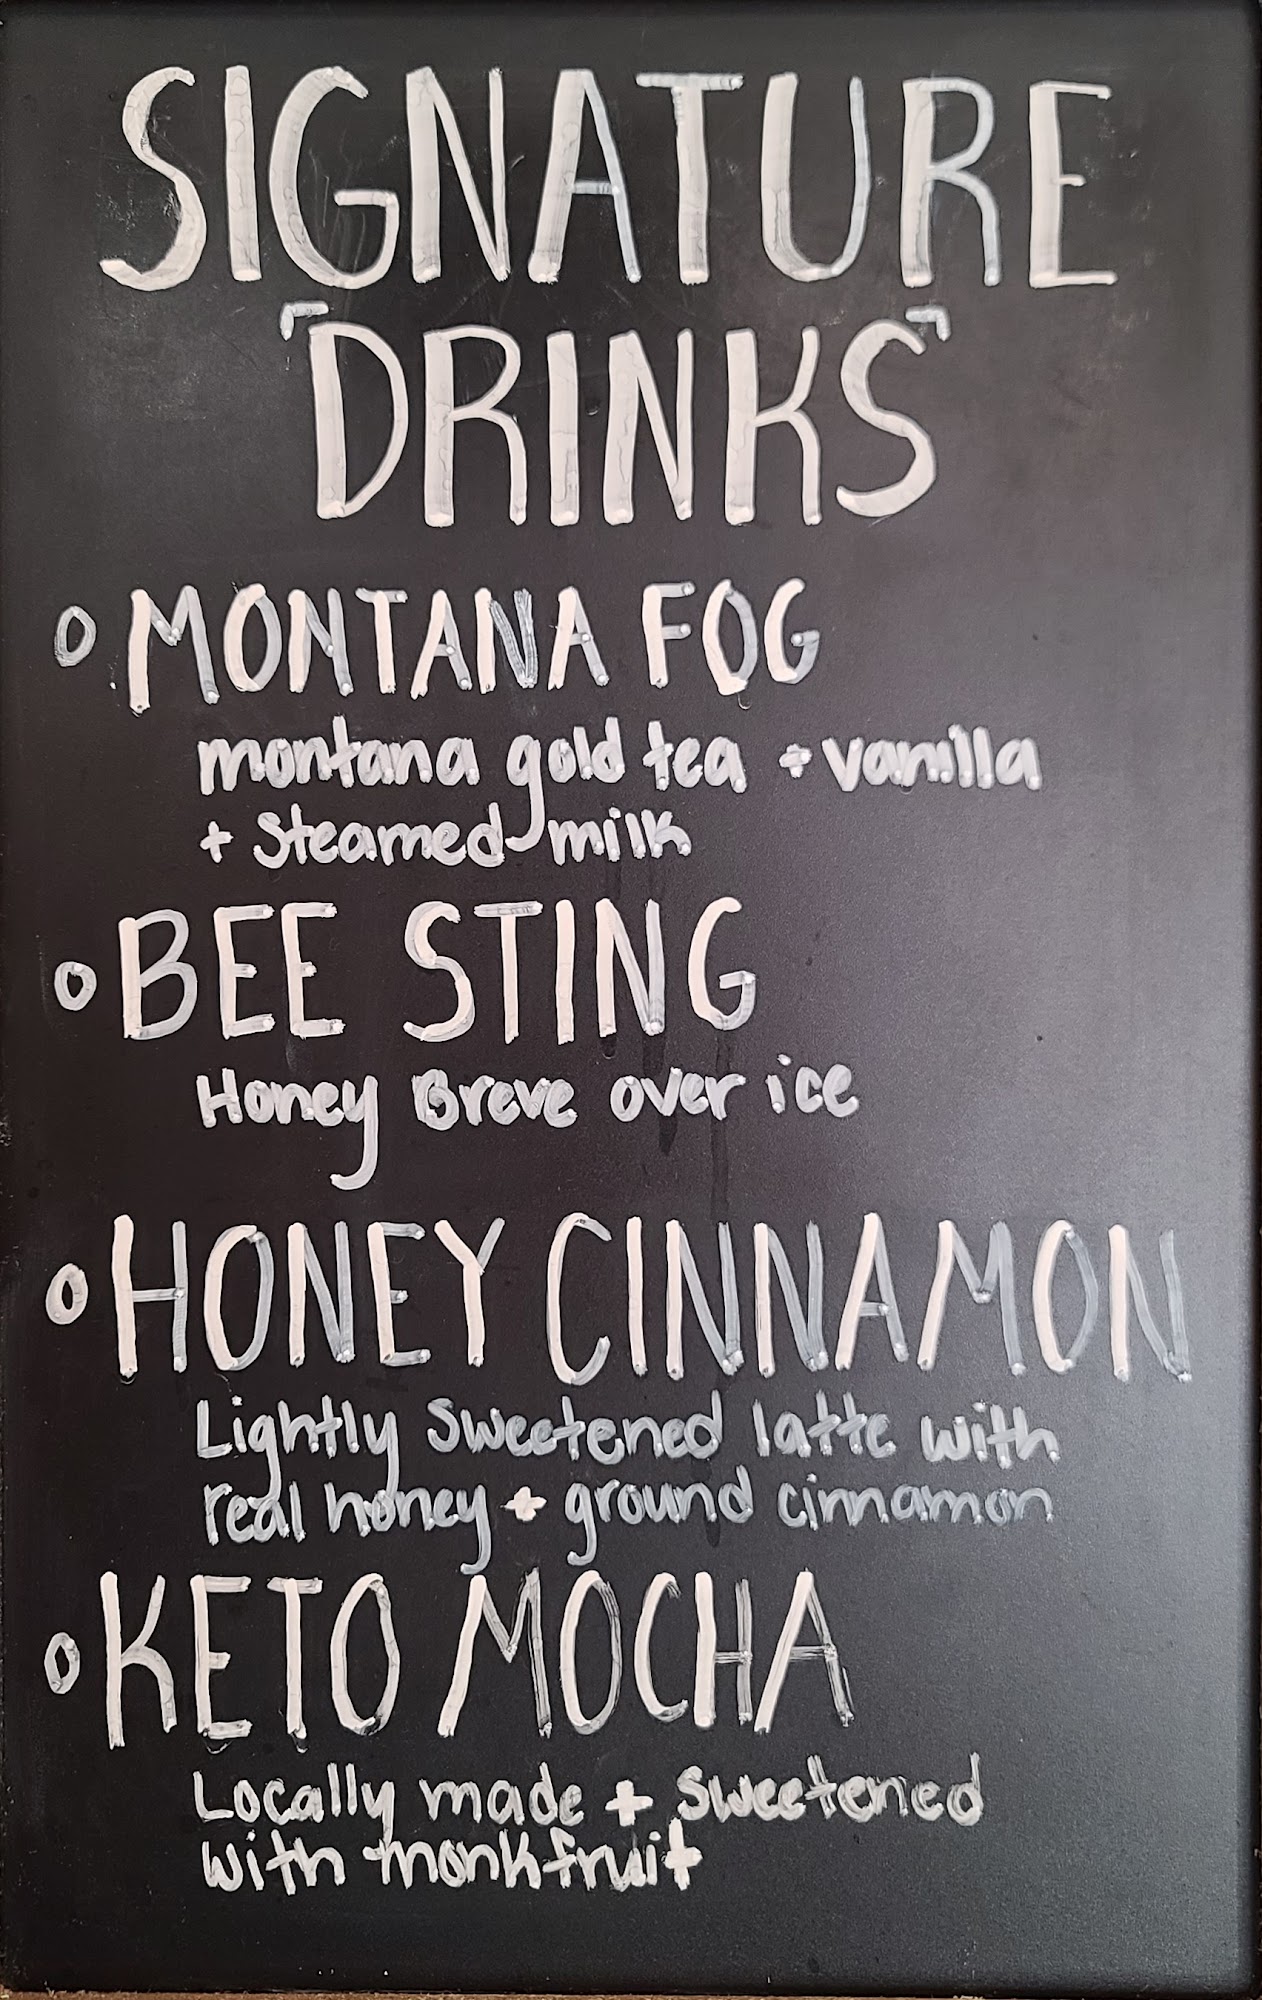 SIGNATURE
DRINKS
MONTANA FOG
montana gold tea + vanilla
+ steamed milk
BEE STING
Honey Breve over ice
HONEY CINNAMON
Lightly sweetened latte with
real honey + ground cinnamon
KETO MOCHA
Locally made + sweetened
with monkfruit